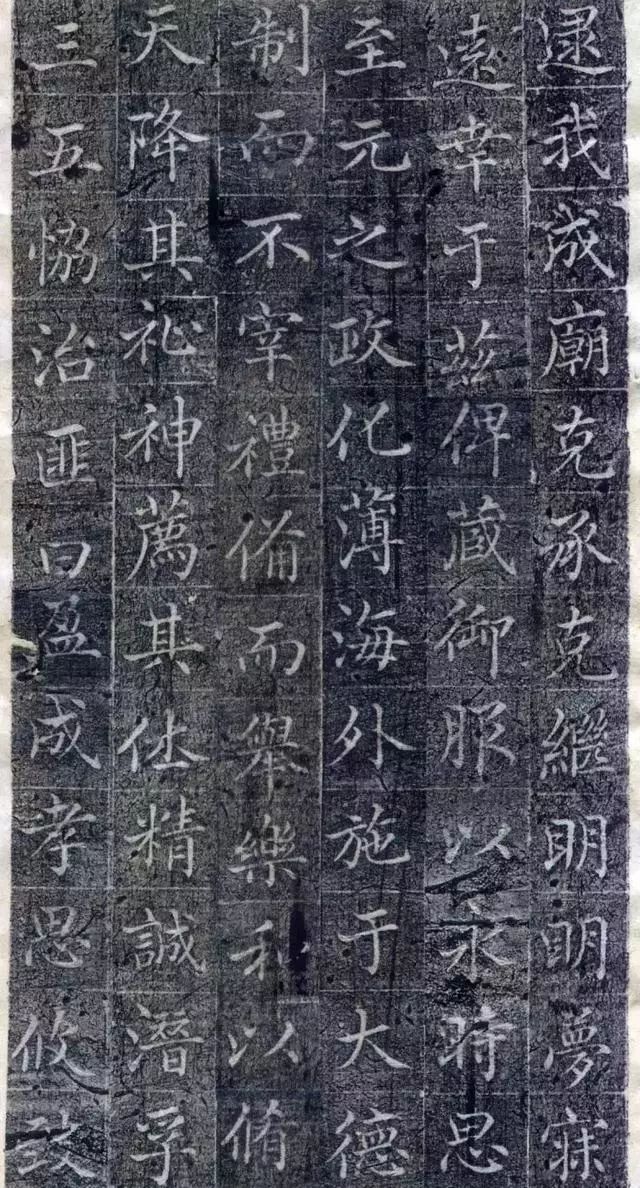 逮我成廟克承克繼明明夢寐
遠幸于茲俾蔵御服以永時思
至元之政化薄海外施于大德
制而不宰禮俻而舉樂和以脩
天降其祉神薦其休精誠潛孚
三五恊治匪曰盈成孝思攸致